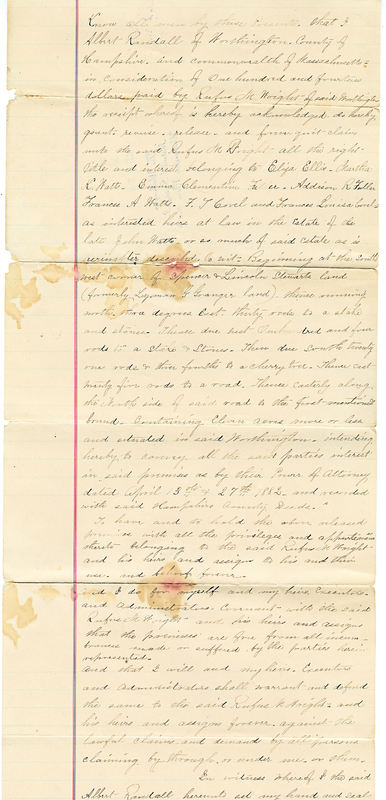 Know all men by these Presents. That I
Albert Randall of Worthington. County of
Hampshire. and commonwealth of Massachusetts
in consideration of One hundred and fourteen
dollars paid by Rufus M Wright of said Worthington
the receipt whereof is hereby acknowledged do hereby
grant, remise, release, and forever quit claim
unto the said Rufus M Wright all the right
title and interest belonging to Eliza Ellis. Martha
E. Watts. Emma Clementine Addison K Fuller
Frances A Watts. F. T Cool and Frances Louisa Cool
as interested heirs at law in the Estate of the
late John Watts or so much of said Estate as is
hereinafter described to wit. Beginning at the South
west corner of Spencer & Lincoln Stewarts land
(formerly Lyman Granger land) thence running
north two degrees East. thirty rods to a stake
and stones. Thence due west One hundred and four
rods to a stake & Stones. Then due South twenty
one rods & three fourths to a cherry tree. Thence east
ninety five rods to a road. Thence easterly along
the North side of said road to the first mentioned
bound. Containing Eleven acres more or less
and situated in said Worthington. intending
hereby to convey all the said parties interest
in said premises as by their Power of Attorney
dated April 27th 1882. and recorded
with said Hampshire County Deeds."
To have and to hold the above released
premises with all the privileges and appurtenances
thereto belonging to the said Rufus M Wright
and his heirs and assigns to his and their
use and behoof forever.
And I do for myself and my heirs, Executors
and Administrators. Covenant with the said
Rufus M Wright and his heirs and assigns
that the premises are free from all incum-
brances made or suffered by the parties herein
represented.
and that I will and my heirs. Executors
and Administrators shall warrant and defend
the same to the said Rufus M Wright and
his heirs and assigns forever against the
lawful claims and demands by all persons
claiming by through or under me or them.
In witness whereof I the said
Albert Randall hereunto set my hand and seal